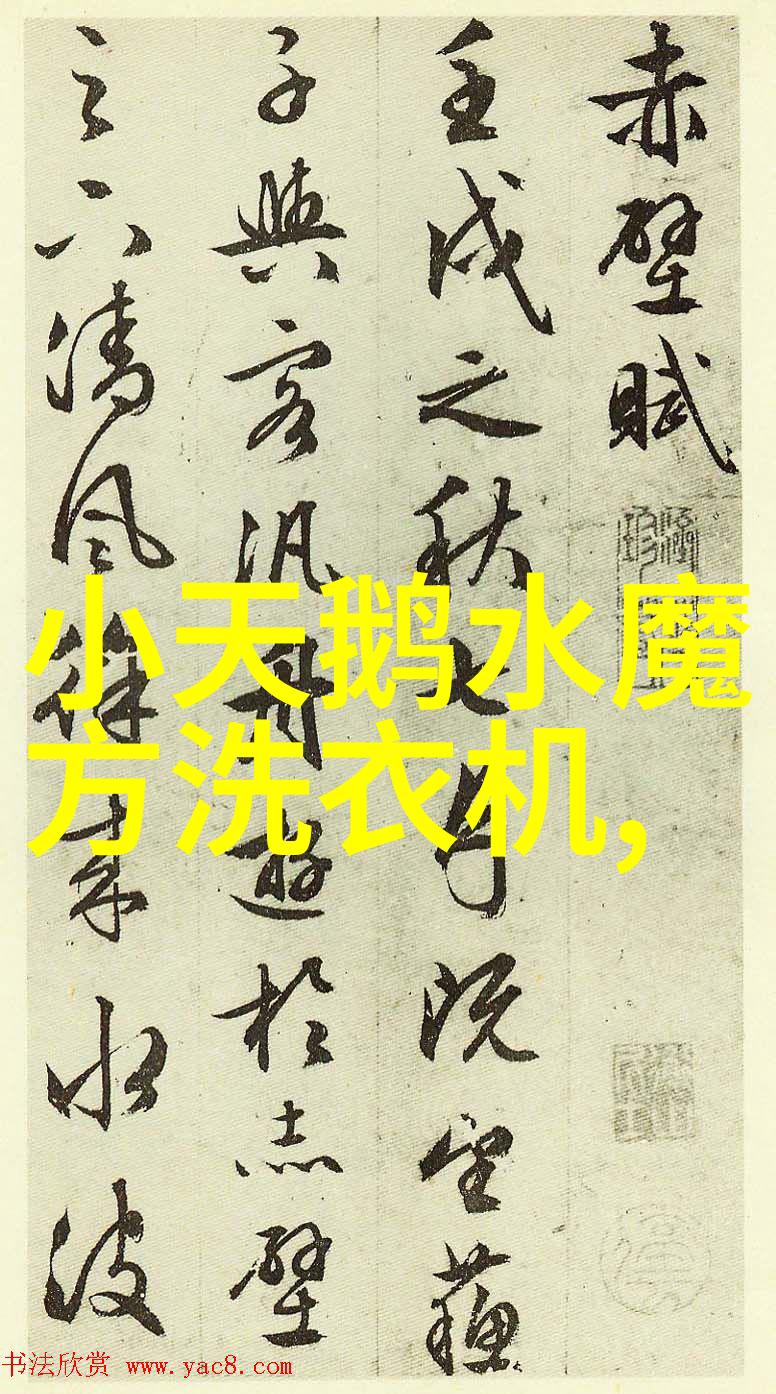 赤壁賦
壬戌之秋七月既望蘓
子與客汎舟遊於赤壁
之下清風徐來水波
小天鹅水魔
方洗衣机,
书法欣赏 www.yac8.com